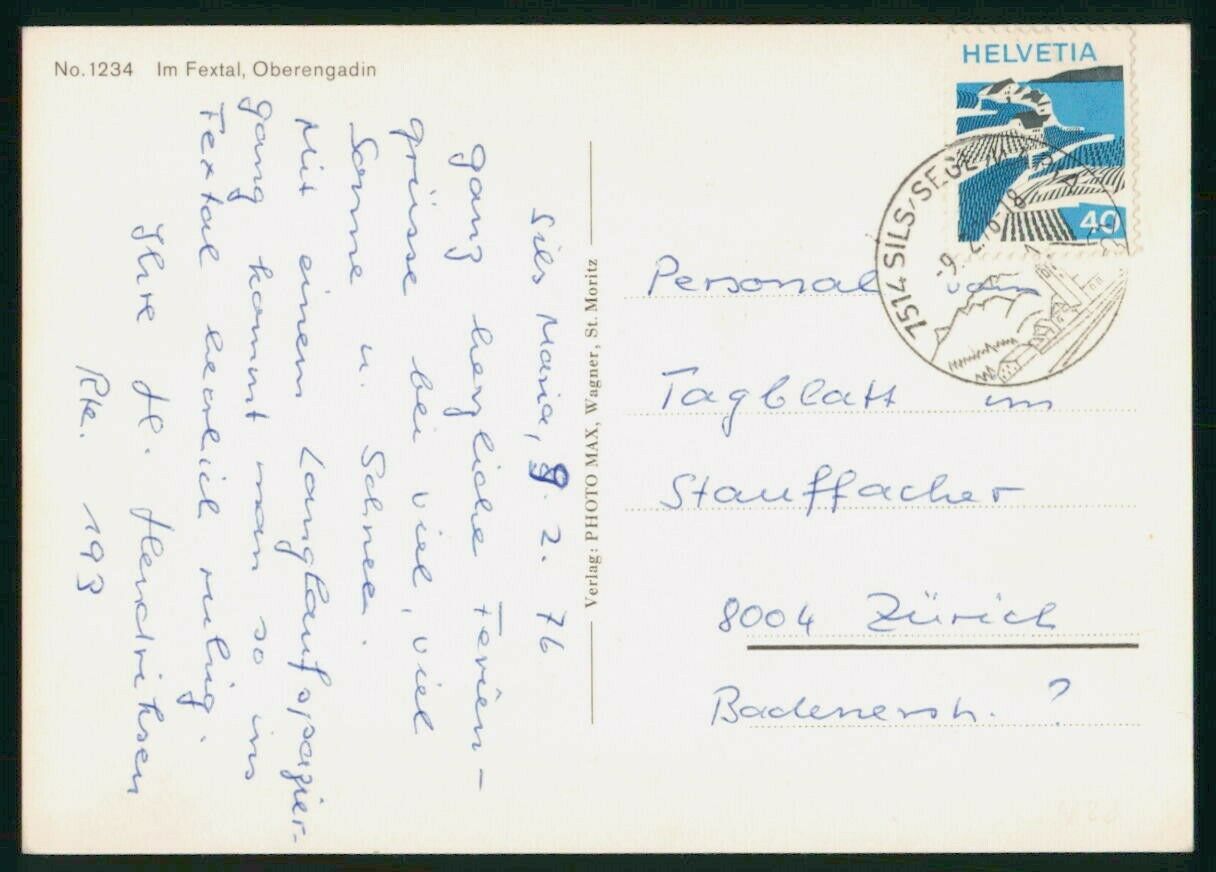 No. 1234 Im Fextal, Oberengadin
Sils Maria, 9. 2. 76
Ganz herzliche Ferien-
grüsse bei viel, viel
Sonne u. Schnee.
Mit einem Langlaufspazier-
gang kommt man so ins
Fextal herrlich ruhig.
Ihre H. Hendriksen
Rte. 193
Verlag: PHOTO MAX, Wagner, St. Moritz
HELVETIA
40
7514 SILS/SEGL MARIA
-9.2.76-18
Personal vom
Tagblatt im
Stauffacher
8004 Zürich
Badenerstr. ?